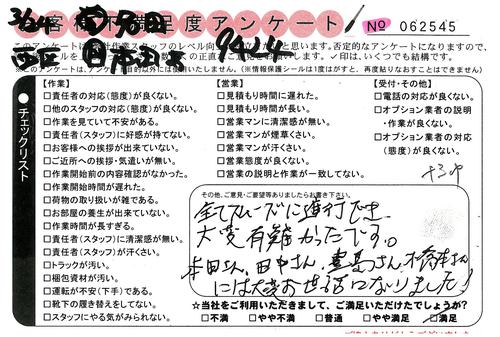 お客様不満足度アンケート
№ 062545
9424
チェックリスト
【作業】
□責任者の対応(態度)が良くない。
□他のスタッフの対応(態度)が良くない。
□作業を見ていて不安がある。
□責任者(スタッフ)に好感が持てない。
□お客様への挨拶が出来ていない。
□ご近所への挨拶・気遣いが無い。
□作業開始前の内容確認がなかった。
□作業開始時間が遅れた。
□荷物の取り扱いが雑である。
□お部屋の養生が出来ていない。
□作業時間が長すぎる。
□責任者(スタッフ)に清潔感が無い。
□責任者(スタッフ)が汗くさい。
□トラックが汚い。
□梱包資材が汚い。
□運転が不安(下手)である。
□靴下の履き替えをしてない。
□スタッフにやる気がみられない。
【営業】
□見積もり時間に遅れた。
□見積もり時間が長い。
□営業マンに清潔感が無い。
□営業マンが煙草くさい。
□営業マンが汗くさい。
□営業態度が良くない。
□営業の説明と作業が一致してない。
【受付・その他】
□電話の対応が良くない。
□オプション業者の説明
・作業が良くない。
□オプション業者の対応
(態度)が良くない。
その他、ご意見・ご要望等ありましたらお書き下さい。
全てスムーズに進行でき
大変有難かったです。
本田さん、田中さん、豊島さん、橋本さん
には大変お世話になりました!
☆当社をご利用いただきまして、ご満足いただけたでしょうか?
□不満 □やや不満 □普通 □やや満足 □満足